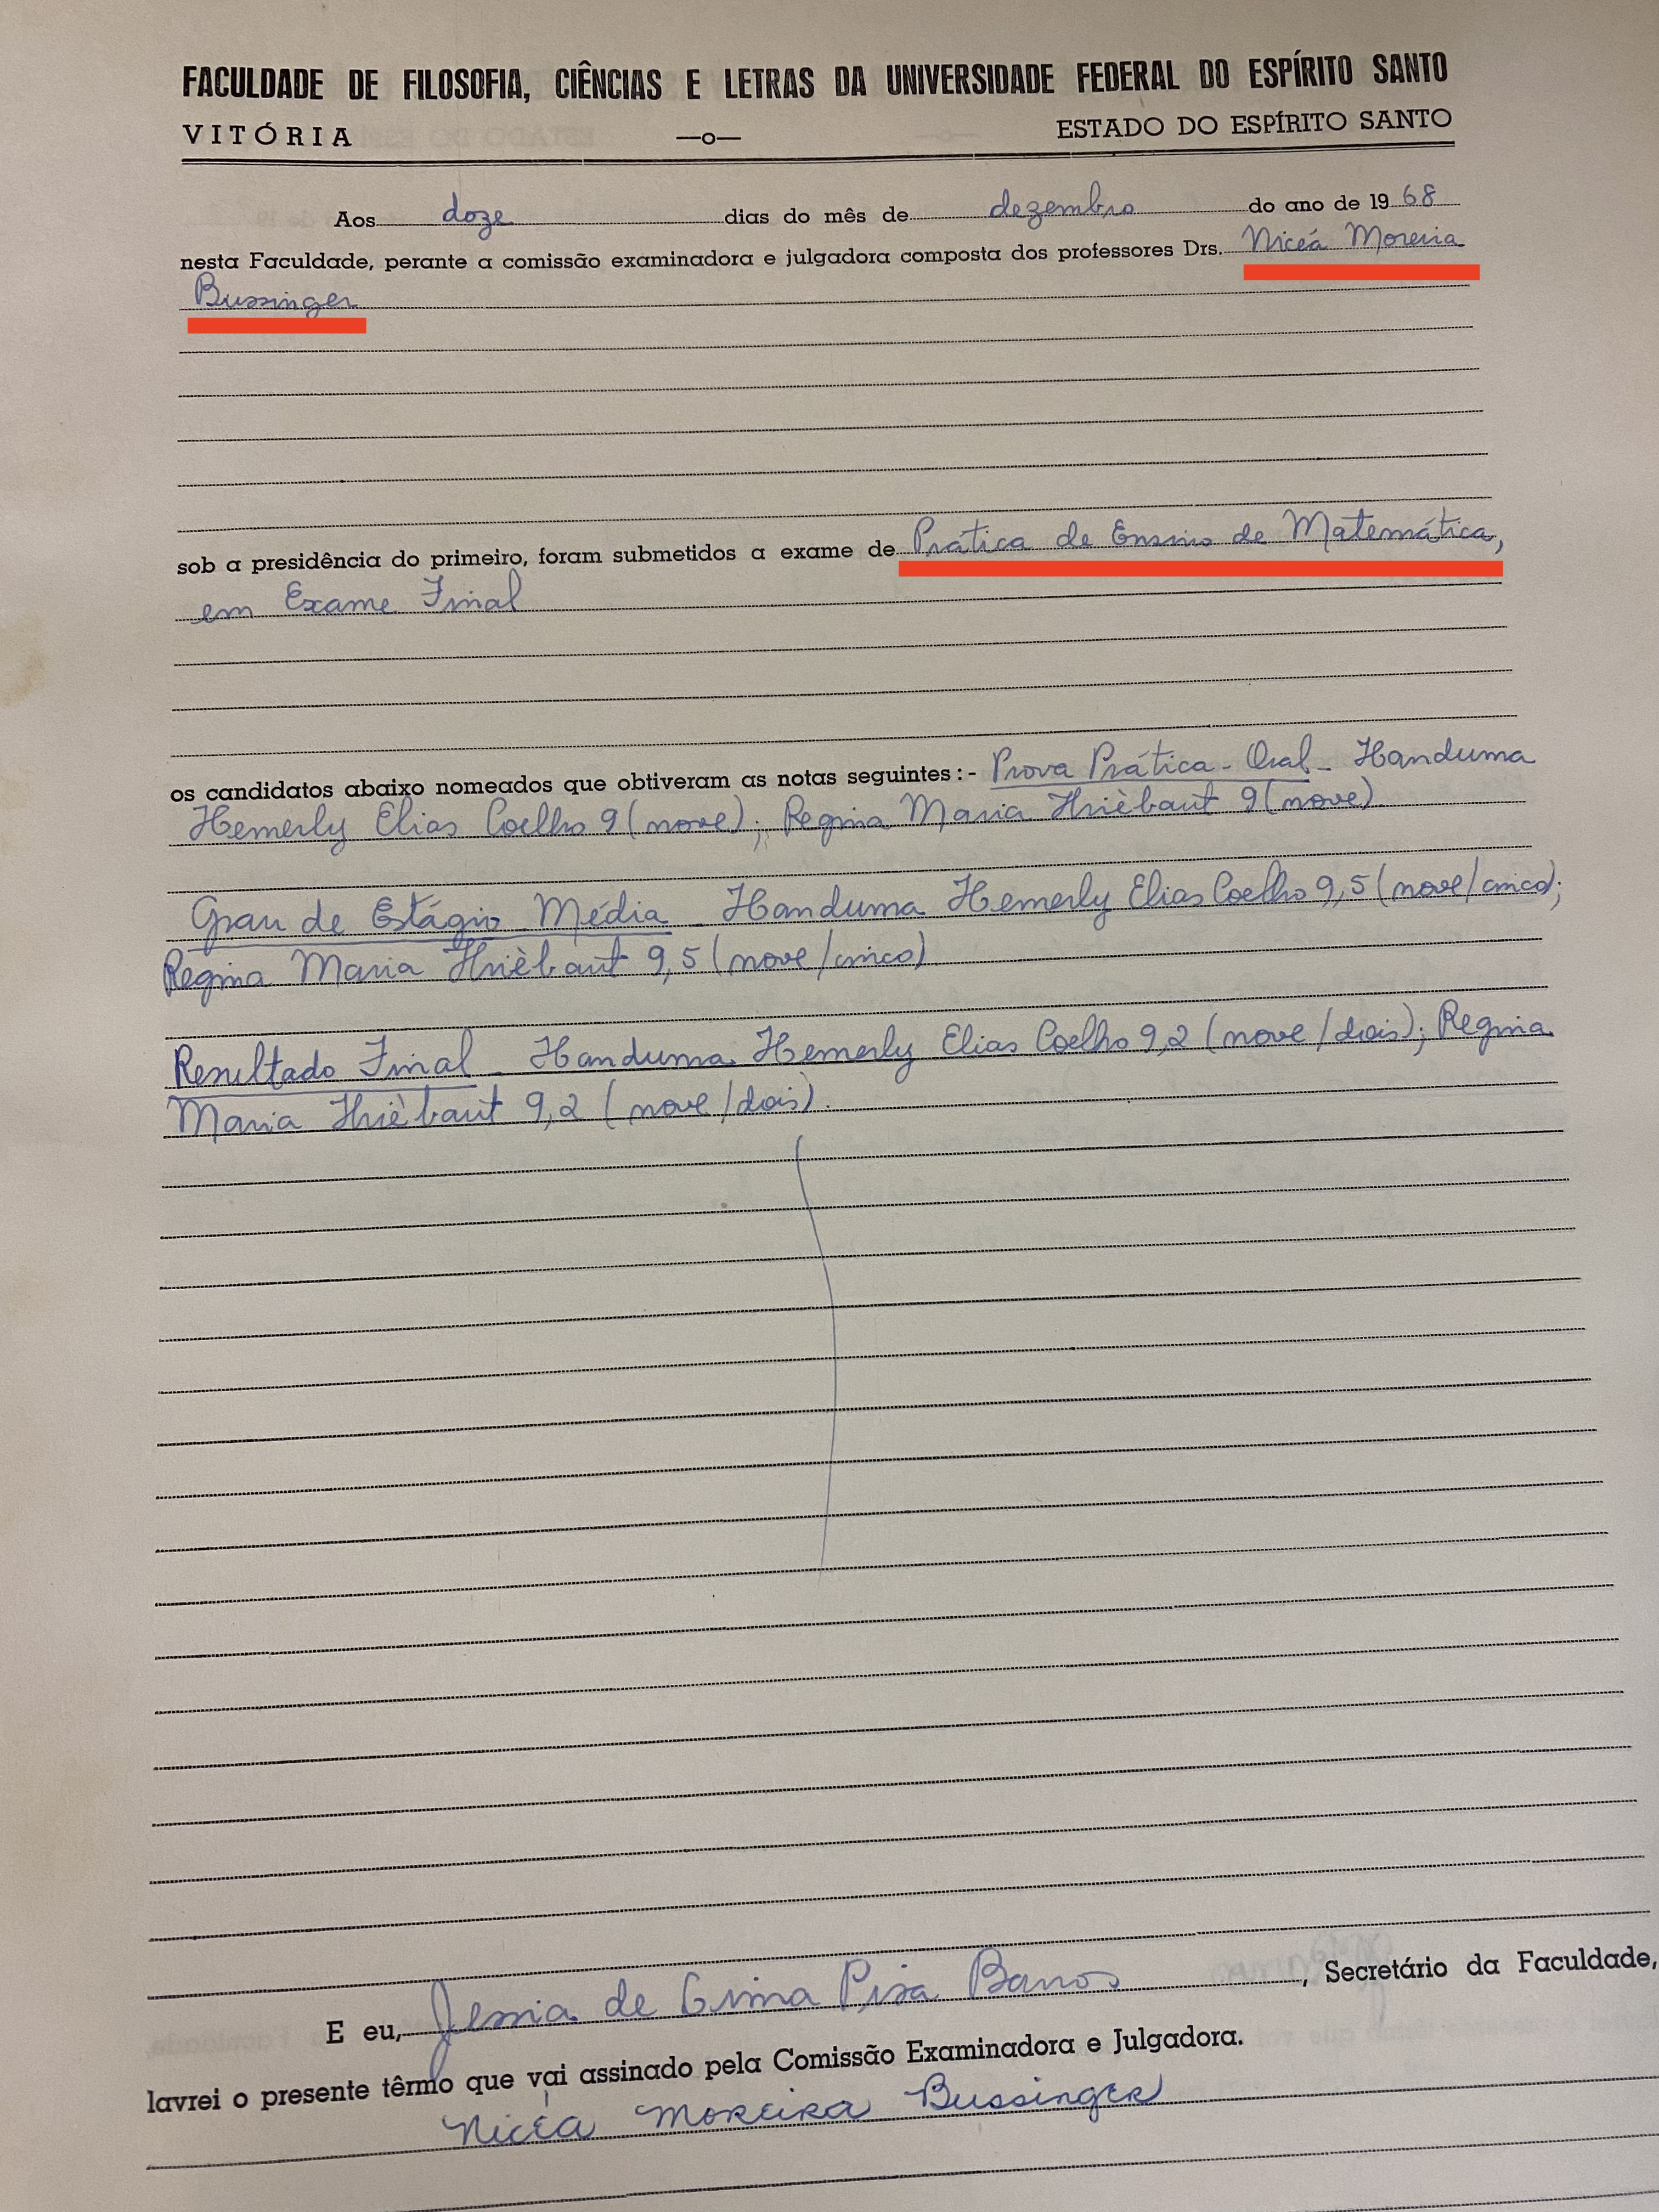 FACULDADE DE FILOSOFIA, CIÊNCIAS E LETRAS DA UNIVERSIDADE FEDERAL DO ESPÍRITO SANTO
VITÓRIA —o— ESTADO DO ESPÍRITO SANTO
Aos doze dias do mês de dezembro do ano de 1968
nesta Faculdade, perante a comissão examinadora e julgadora composta dos professores Drs. Niceá Moreira
Bussinger
sob a presidência do primeiro, foram submetidos a exame de Prática de Ensino de Matemática,
em Exame Final
os candidatos abaixo nomeados que obtiveram as notas seguintes:- Prova Prática - Oral - Handuma
Hemerly Elias Coelho 9 (nove); Regina Maria Thièbaut 9 (nove)
Grau de Estágio - Média - Handuma Hemerly Elias Coelho 9,5 (nove/cinco);
Regina Maria Thièbaut 9,5 (nove/cinco)
Resultado Final - Handuma Hemerly Elias Coelho 9,2 (nove/dois); Regina
Maria Thièbaut 9,2 (nove/dois).
E eu, de Lima Barros, Secretário da Faculdade,
lavrei o presente têrmo que vai assinado pela Comissão Examinadora e Julgadora.
Nicéa Moreira Bussinger